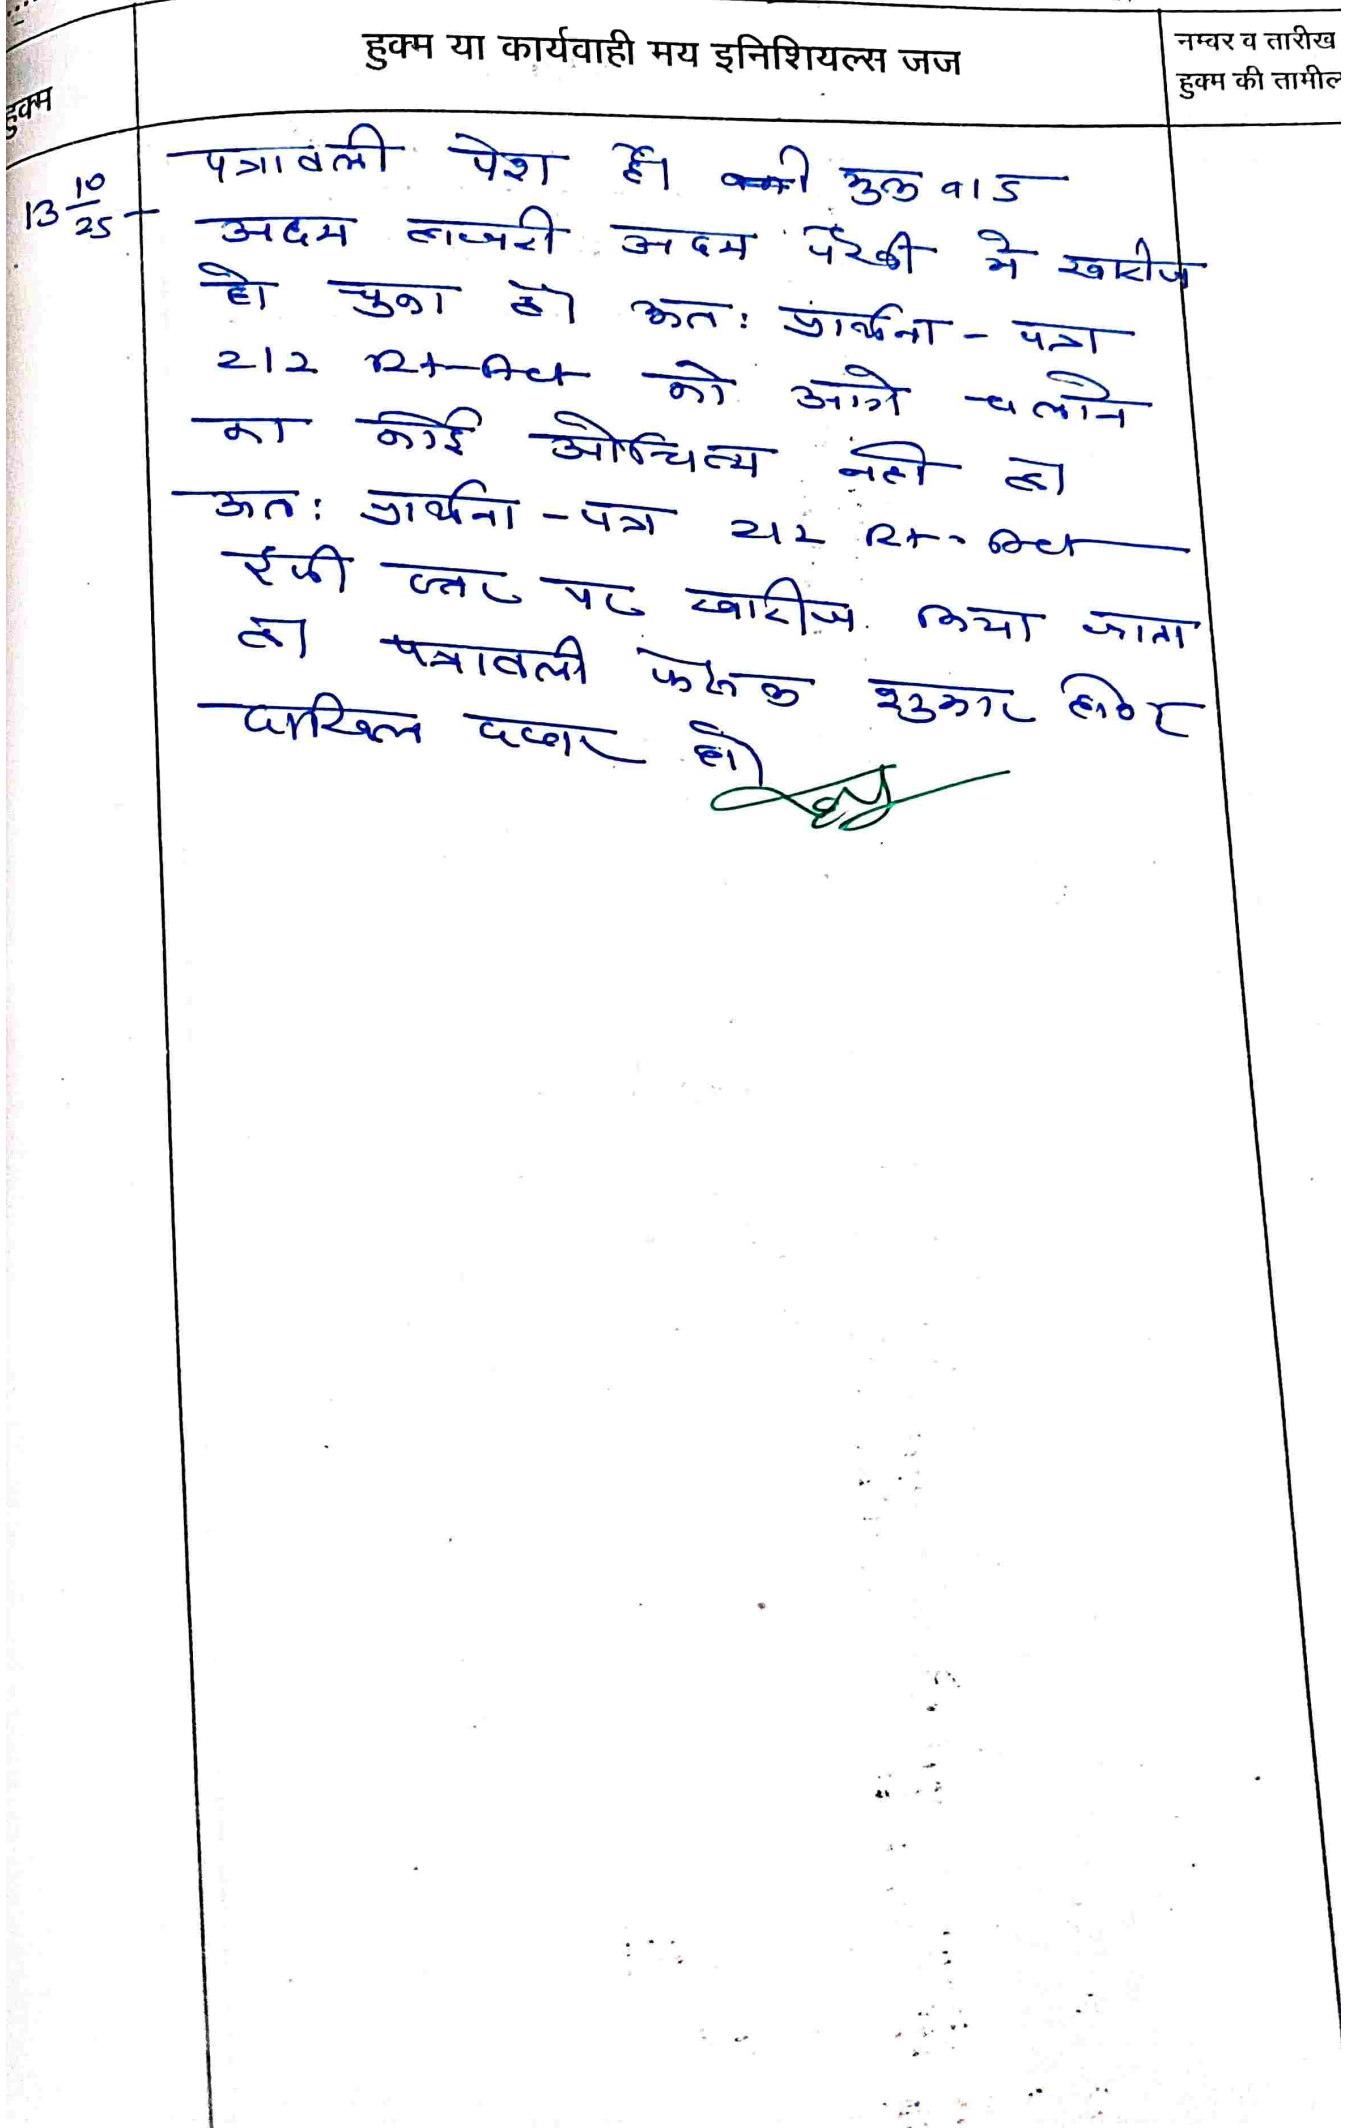 हुक्म या कार्यवाही मय इनिशियल्स जज
नम्बर व तारीख
हुक्म की तामील
हुक्म
13 10/25
पत्रावली पेश है। मुल वाद
अदम हाजरी अदम पैरवी मे खारीज
हो चुका है। अतः प्रार्थना - पत्र
212 Rt-Act को आगे चलाने
का कोई औचित्य नही है।
अतः प्रार्थना - पत्र 212 Rt. Act
ईसी स्तर पर खारीज किया जाता
है। पत्रावली फैसल शुमार होकर
दाखिल दफ्तर हो।